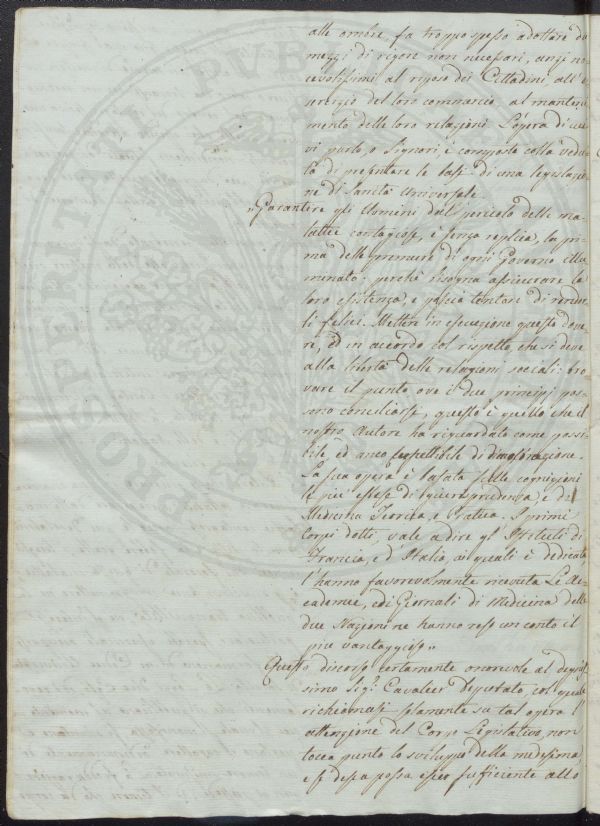 PROSPERITATI PVB
alle ombre fa troppo spesso adottare de
mezzi di rigore non necessari, anzi no-
cevolissimi al riposo dei Cittadini, all'e
nergia del loro commercio, al manteni
mento delle loro relazioni. L'opera di cui
vi parlo, o Signori, è composta colla vedu
ta di presentare le basi di una legislazio
ne di Sanità Universale.
„Garantire gli Uomini dal pericolo delle ma-
lattie contagiose, è senza replica, la pri
ma delle premure di ogni Governo illu
minato: perchè bisogna assicurare la
loro esistenza, e poscia tentare di render
li felici. Mettere in esecuzione questo dove
re, ed in accordo col rispetto, che si deve
alla libertà delle relazioni sociali: tro
vare il punto, ove i due principj pos
sono conciliarsi, questo è quello che il
nostro Autore ha riguardato come possi
bile, ed anco suscettibile di dimostrazione.
La sua opera è basata sulle cognizioni
le più estese di Giurisprudenza e di
Medicina Teorica, e Pratica. I primi
Corpi dotti, vale a dire gl'Istituti di
Francia, e d'Italia, ai quali è dedicata
l'hanno favorevolmente ricevuta. Le Ac-
cademie, ed i Giornali di Medicina delle
due Nazioni ne hanno reso un conto il
più vantaggioso„
Questo discorso certamente onorevole al degnis
simo Sig.r Cavalier Deputato, col quale
richiamasi solamente su tal opera l'
attenzione del Corpo Legislativo, non
tocca punto lo sviluppo della medesima,
e se dessa possa esser sufficiente allo